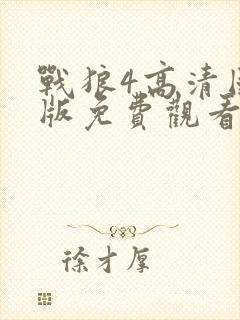 戰狼4高清
版免費觀看
徐才厚